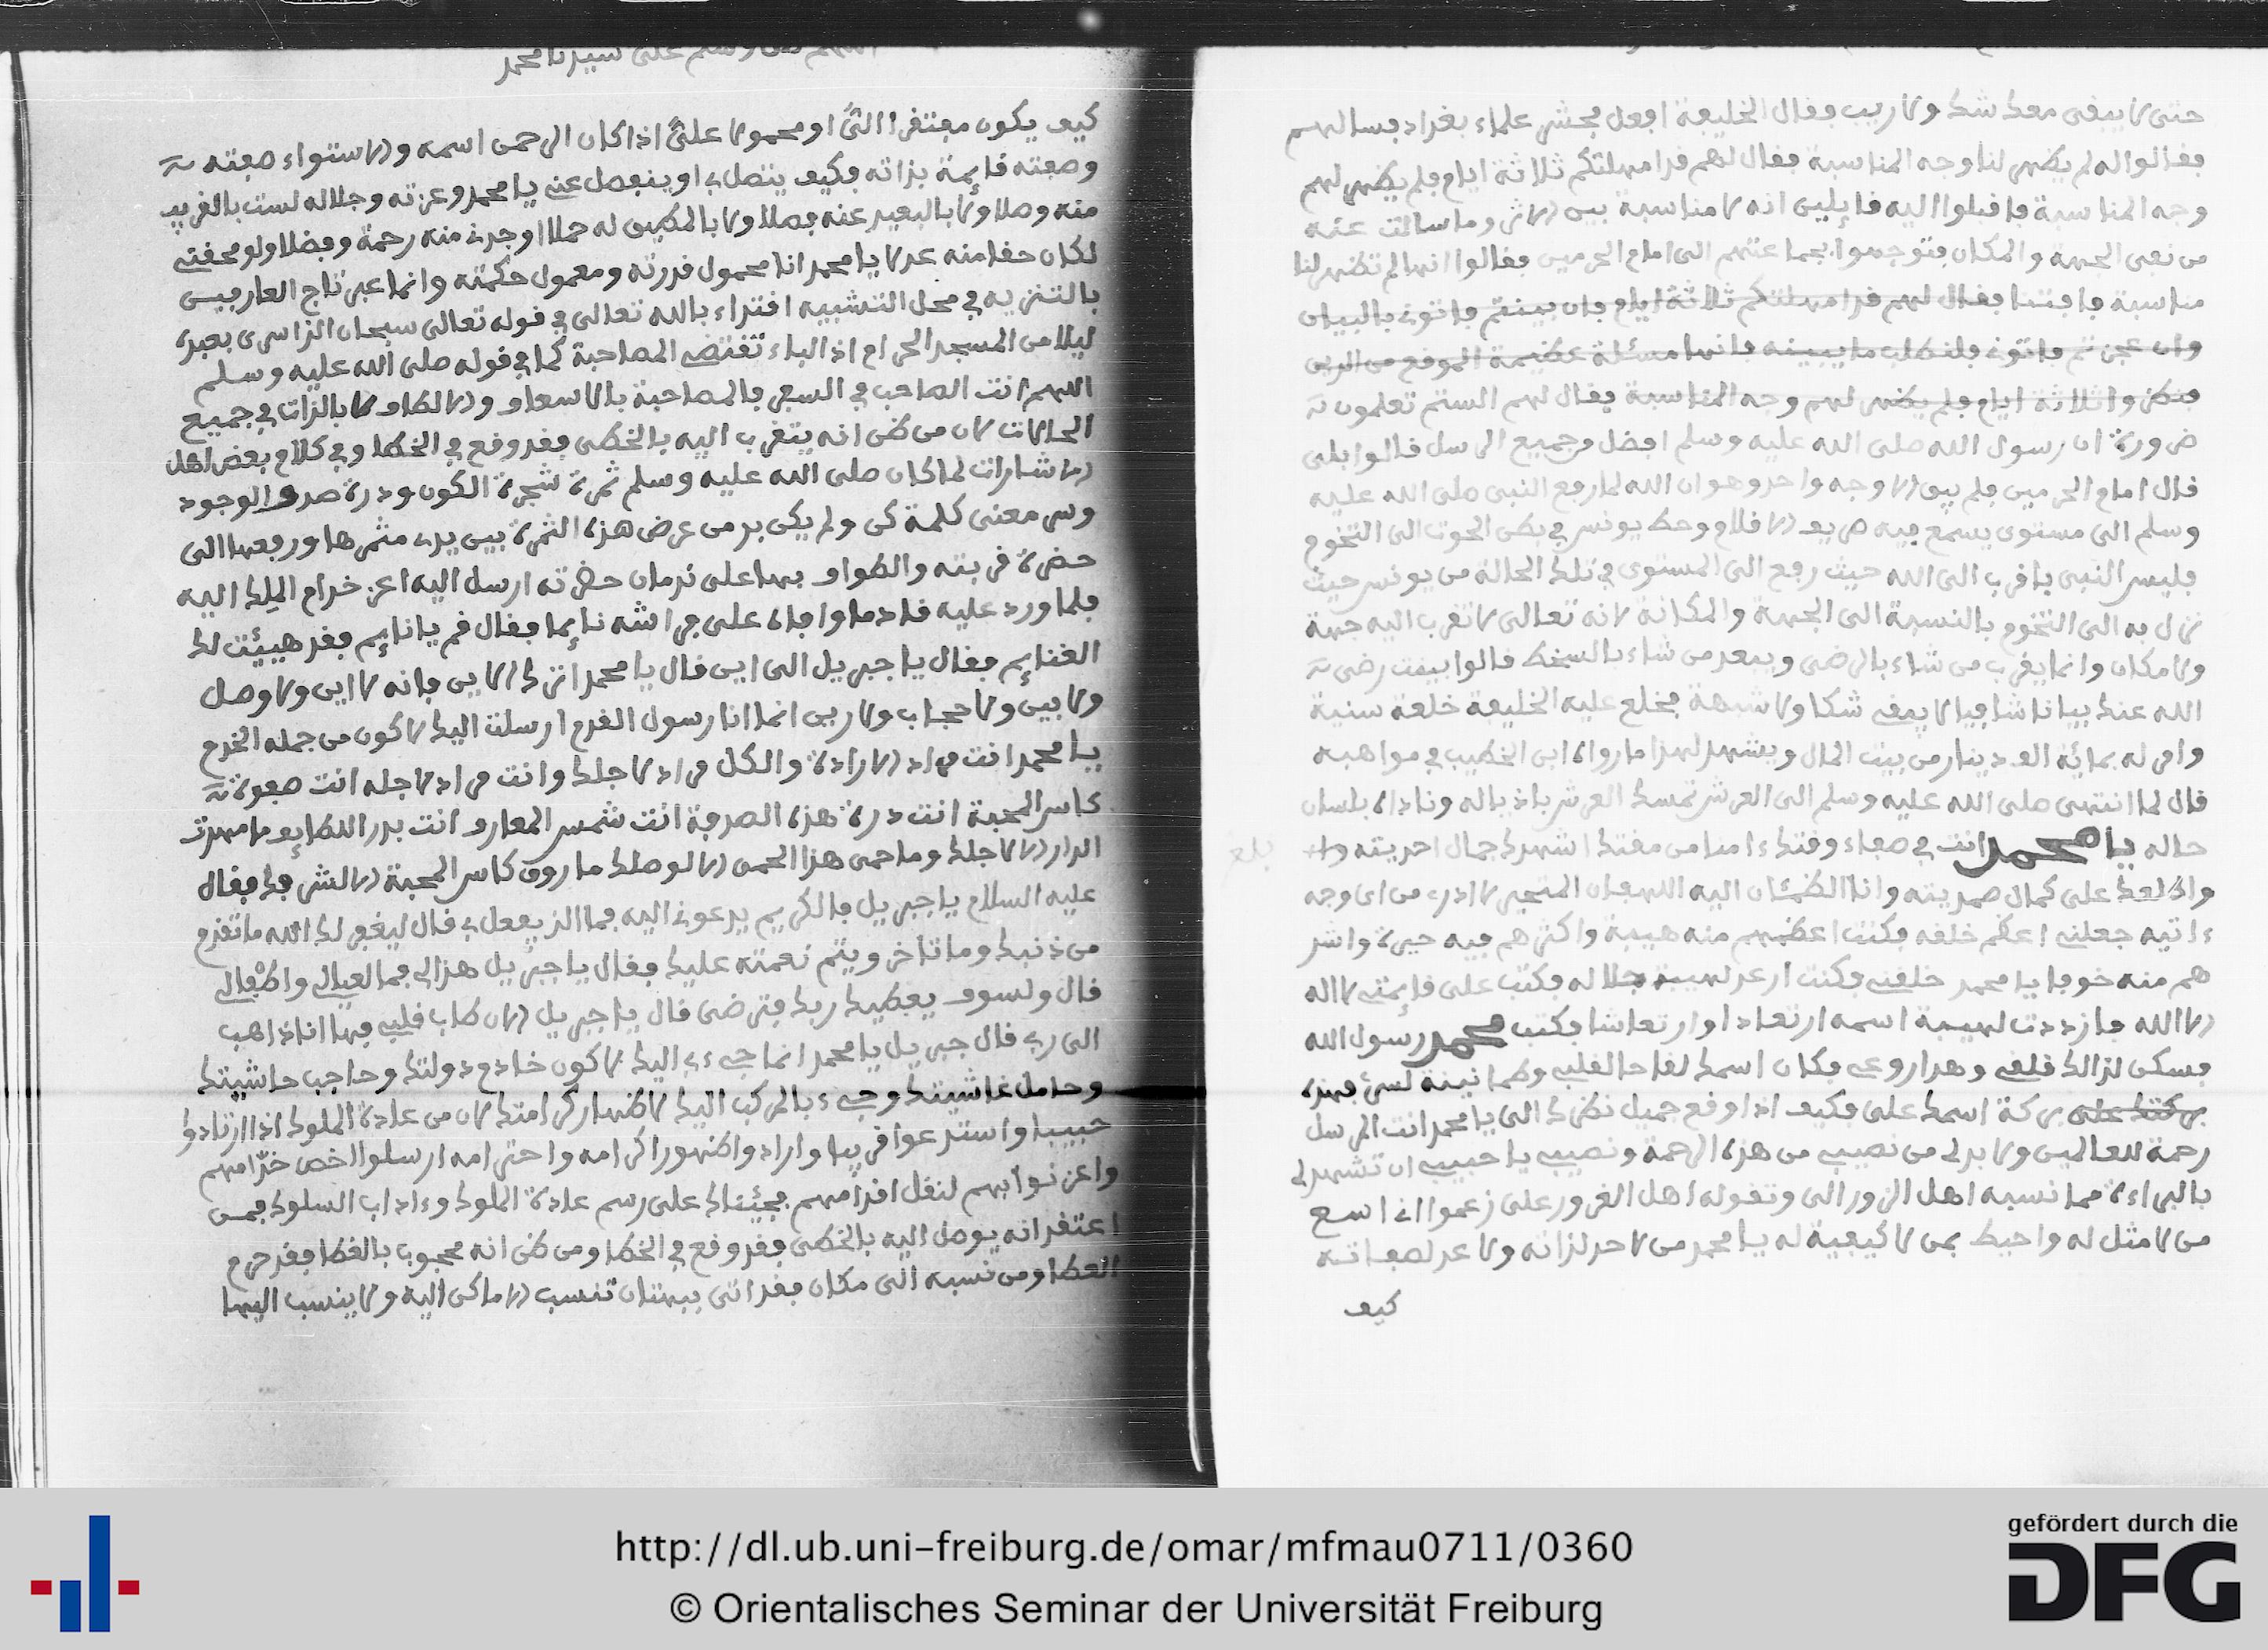 حتى لا يبقى معك شك ولا ريب فقال الخليفة افعل فحشر علماء بغداد فسالهم
فقالوا له لم يظهر لنا وجه المناسبة فقال لهم قد امهلتكم ثلاثة ايام فلم يظهر لهم
وجه المناسبة فاقبلوا اليه قايلين انه لا مناسبة بين الاثر وما سالت عنه
من نفى الجهة والمكان فتوجهوا بجماعتهم الى امام الحرمين فقالوا انها لم تظهر لنا
مناسبة فافتنا فقال لهم قد امهلتكم ثلاثة ايام فان بينتم فاتونى بالبيان
وان عجزتم فاتونى فلنطلب ما يبينه فانها مسئلة عظيمة الموقع من الدين
فنظروا ثلاثة ايام فلم يظهر لهم وجه المناسبة فقال لهم الستم تعلمون
ضرورة ان رسول الله صلى الله عليه وسلم افضل من جميع الرسل قالوا بلى
قال امام الحرمين فلم يبق الا وجه واحد وهو ان الله لما رفع النبى صلى الله عليه
وسلم الى مستوى يسمع فيه صريف الاقلام وحط يونس في بطن الحوت الى التخوم
فليس النبى باقرب الى الله حيث رفع الى المستوى في تلك الحالة من يونس حيث
نزل به الى التخوم بالنسبة الى الجهة والمكانة لانه تعالى لا تقرب اليه جهة
ولا مكان وانما يقرب من شاء بالرضى ويبعد من شاء بالسخط قالوا بينت رضى
الله عنك بيانا شافيا لا يبقى شكا ولا شبهة فخلع عليه الخليفة خلعة سنية
وامر له بمائة الف دينار من بيت المال ويشهد لهذا ما رواه ابن الخطيب في مواهبه
قال لما انتهى صلى الله عليه وسلم الى العرش تمسك العرش باذياله وناداه بلسان
حاله يا محمد انت في صفاء وقتك ءامنا من مقتك اشهدك جمال احديته
واطلعك على كمال صمديته وانا الظمئان اليه اللهفان المتحير لا ادرى من اى وجه
ءاتيه جعلنى اعظم خلقه فكنت اعظمهم منه هيبة واكثرهم فيه حيرة واشد
هم منه خوفا يا محمد خلقنى فكنت ارعد لهيبة جلاله فكتب على قايمتى لا اله
الا الله فازددت لهيبة اسمه ارتعادا وارتعاشا فكتب محمد رسول الله
فسكن لذالك قلقى وهدا روعى فكان اسمك لقاحا لقلبى وطمانينة لسرى فهذه
بركتك على بركة اسمك على فكيف اذا وقع جميل نظرك الى يا محمد انت المرسل
رحمة للعالمين ولا بد لى من نصيب من هذه الرحمة ونصيبى يا حبيبى ان تشهد لى
بالبراءة مما نسبه اهل الزور الى وتقوله اهل الغرور على زعموا انى اسع
من لا مثل له واحيط بمن لا كيفية له يا محمد من لا حد لذاته ولا عد لصفاته
كيف
كيف يكون مفتقرا الىَّ او محمولا علىَّ اذا كان الرحمن اسمه والاستواء صفته
وصفته قايمة بذاته فكيف يتصل بى او ينفصل عنى يا محمد وعزته وجلاله لست بالقريب
منه وصلا ولا بالبعيد عنه فصلا ولا بالمطيق له حملا اوجدنى منه رحمة وفضلا ولو محقنى
لكان حقا منه عدلا يا محمد انا محمول قدرته ومعمول حكمته وانما عبر تاج العارفين
بالتنزيه في محل التشبيه اقتداء بالله تعالى في قوله تعالى سبحان الذى اسرى بعبده
ليلا من المسجد الحرام اذ الباء تقتضى المصاحبة كما في قوله صلى الله عليه وسلم
اللهم انت الصاحب في السفر فالمصاحبة بالاسعاف والالطاف لا بالذات في جميع
الحالات لان من ظن انه يتقرب اليه بالخطى فقد وقع في الخطا وفي كلام بعض اهل
الاشارات لما كان صلى الله عليه وسلم ثمرة شجرة الكون ودرة صدف الوجود
وسر معنى كلمة كن ولم يكن بد من عرض هذه الثمرة بين يدى مثمرها ورفعها الى
حضرة قربته والطواف بها على ندمان حضرته ارسل اليه اعز خدام الملك اليه
فلما ورد عليه قادما وافاه على فراشه نايما فقال قم يا نايم فقد هيئت لك
الغنايم فقال يا جبريل الى اين قال يا محمد اترك الاين فانه لا اين ولا وصل
ولا بين ولا حجاب ولا رين انما انا رسول القدم ارسلت اليك لاكون من جملة الخدم
يا محمد انت مراد الارادة والكل مراد لاجلك وانت مراد لاجله انت صفوة
كاس المحبة انت درة هذه الصدفة انت شمس المعارف انت بدر اللطايف ما مهدت
الدار الا لاجلك وما حمى هذا الحمى الا لوصلك ما روق كاس المحبة الا لشربك فقال
عليه السلام يا جبريل فالكريم يدعونى اليه فما الذى يفعل بى قال ليغفر لك الله ما تقدم
من ذنبك وما تاخر ويتم نعمته عليك فقال يا جبريل هذا لى فما لعيالى واطفالى
قال ولسوف يعطيك ربك فترضى قال يا جبريل الان طاب قلبى فها انا ذاهب
الى ربى قال جبريل يا محمد انما جىء بى اليك لاكون خادم دولتك وحاجب حاشيتك
وحامل غاشيتك وجىء بالمركب اليك لاظهار كرامتك لان من عادة الملوك اذا ارتادوا
حبيبا واستدعوا قريبا وارادوا ظهور اكرامه واحترامه ارسلوا اخص خدامهم
واعز نوابهم لنقل اقدامهم فجئناك على رسم عادة الملوك وءاداب السلوك فمن
اعتقد انه يوصل اليه بالخطى فقد وقع في الخطا ومن ظن انه محجوب بالغطا فقد حرم
العطا ومن نسبه الى مكان فقد اتى ببهتان تنسب الاماكن اليه ولا ينسب اليها
http://dl.ub.uni-freiburg.de/omar/mfmau0711/0360
© Orientalisches Seminar der Universität Freiburg
gefördert durch die
DFG